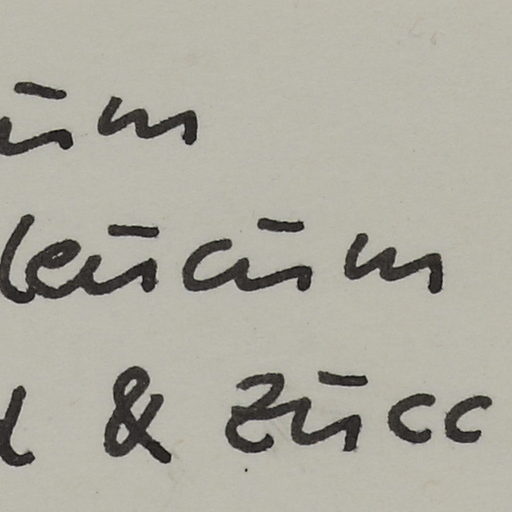 ūm
leūcūm
& Zūcc